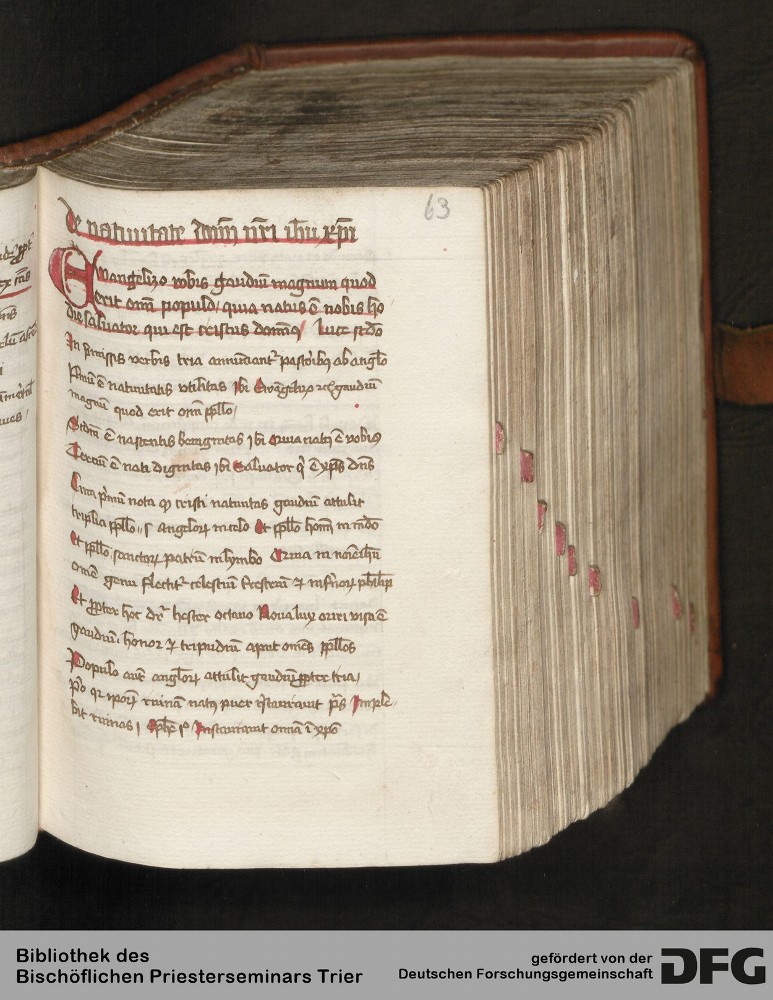 63
De natiuitate dom̄ nr̄i ih̄u xp̄i
Ewangelizo vobis gaudiū magnum quod
erit om̄i populo / quia natus ē nobis ho
die saluator qui est cristus domin9 / luce sc̄do
In p̄missis verbis tria annūciant᷑ pastorib9 ab anglo
Pmū ē natiuitatis vtilitas ibi Ewāgelizo gaudiū
magnū quod erit om̄i pp̄lo /
Sc̄dm ē nascentis benignitas ibi Quia nat9 ē vobis
Terciū ē nati dignitas ibi Saluator q̄ ē xp̄s dn̄s
Circa p̄mū nota cristi natiuitas gaudiū attulit
triplici pp̄lo angelorꝫ in celo Et pp̄lo hom̄ in mūdo
Et pp̄lo sanctorꝫ patrū in lymbo in noīe ih̄u
om̄e genu flectit᷑ celestiū t̄restriū ⁊ inf̄norꝫ philip
Et propter hoc dr᷑ hester octauo Noua lux oriri visa ē
gaudiū honor ⁊ tripudiū aput om̄es pp̄los
Populo aūt anglorꝫ attulit gaudiū propter tria /
ruinā nat9 puer p̄s Imple-
bit ruinas Instaurare omīa ī xp̄o
Bibliothek des
Bischöflichen Priesterseminars Trier
gefördert von der
Deutschen Forschungsgemeinschaft
DFG